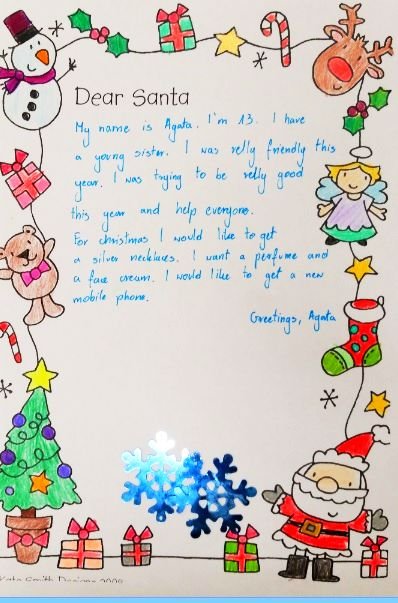 Dear Santa
My name is Agata. I'm 13. I have
a young sister. I was relly friendly this
year. I was trying to be relly good
this year and help everyone.
For christmas I would like to get
a silver necklaces. I want a perfume and
a face cream. I would like to get a new
mobile phone.
Greetings, Agata
Kate Smith Designs 2008